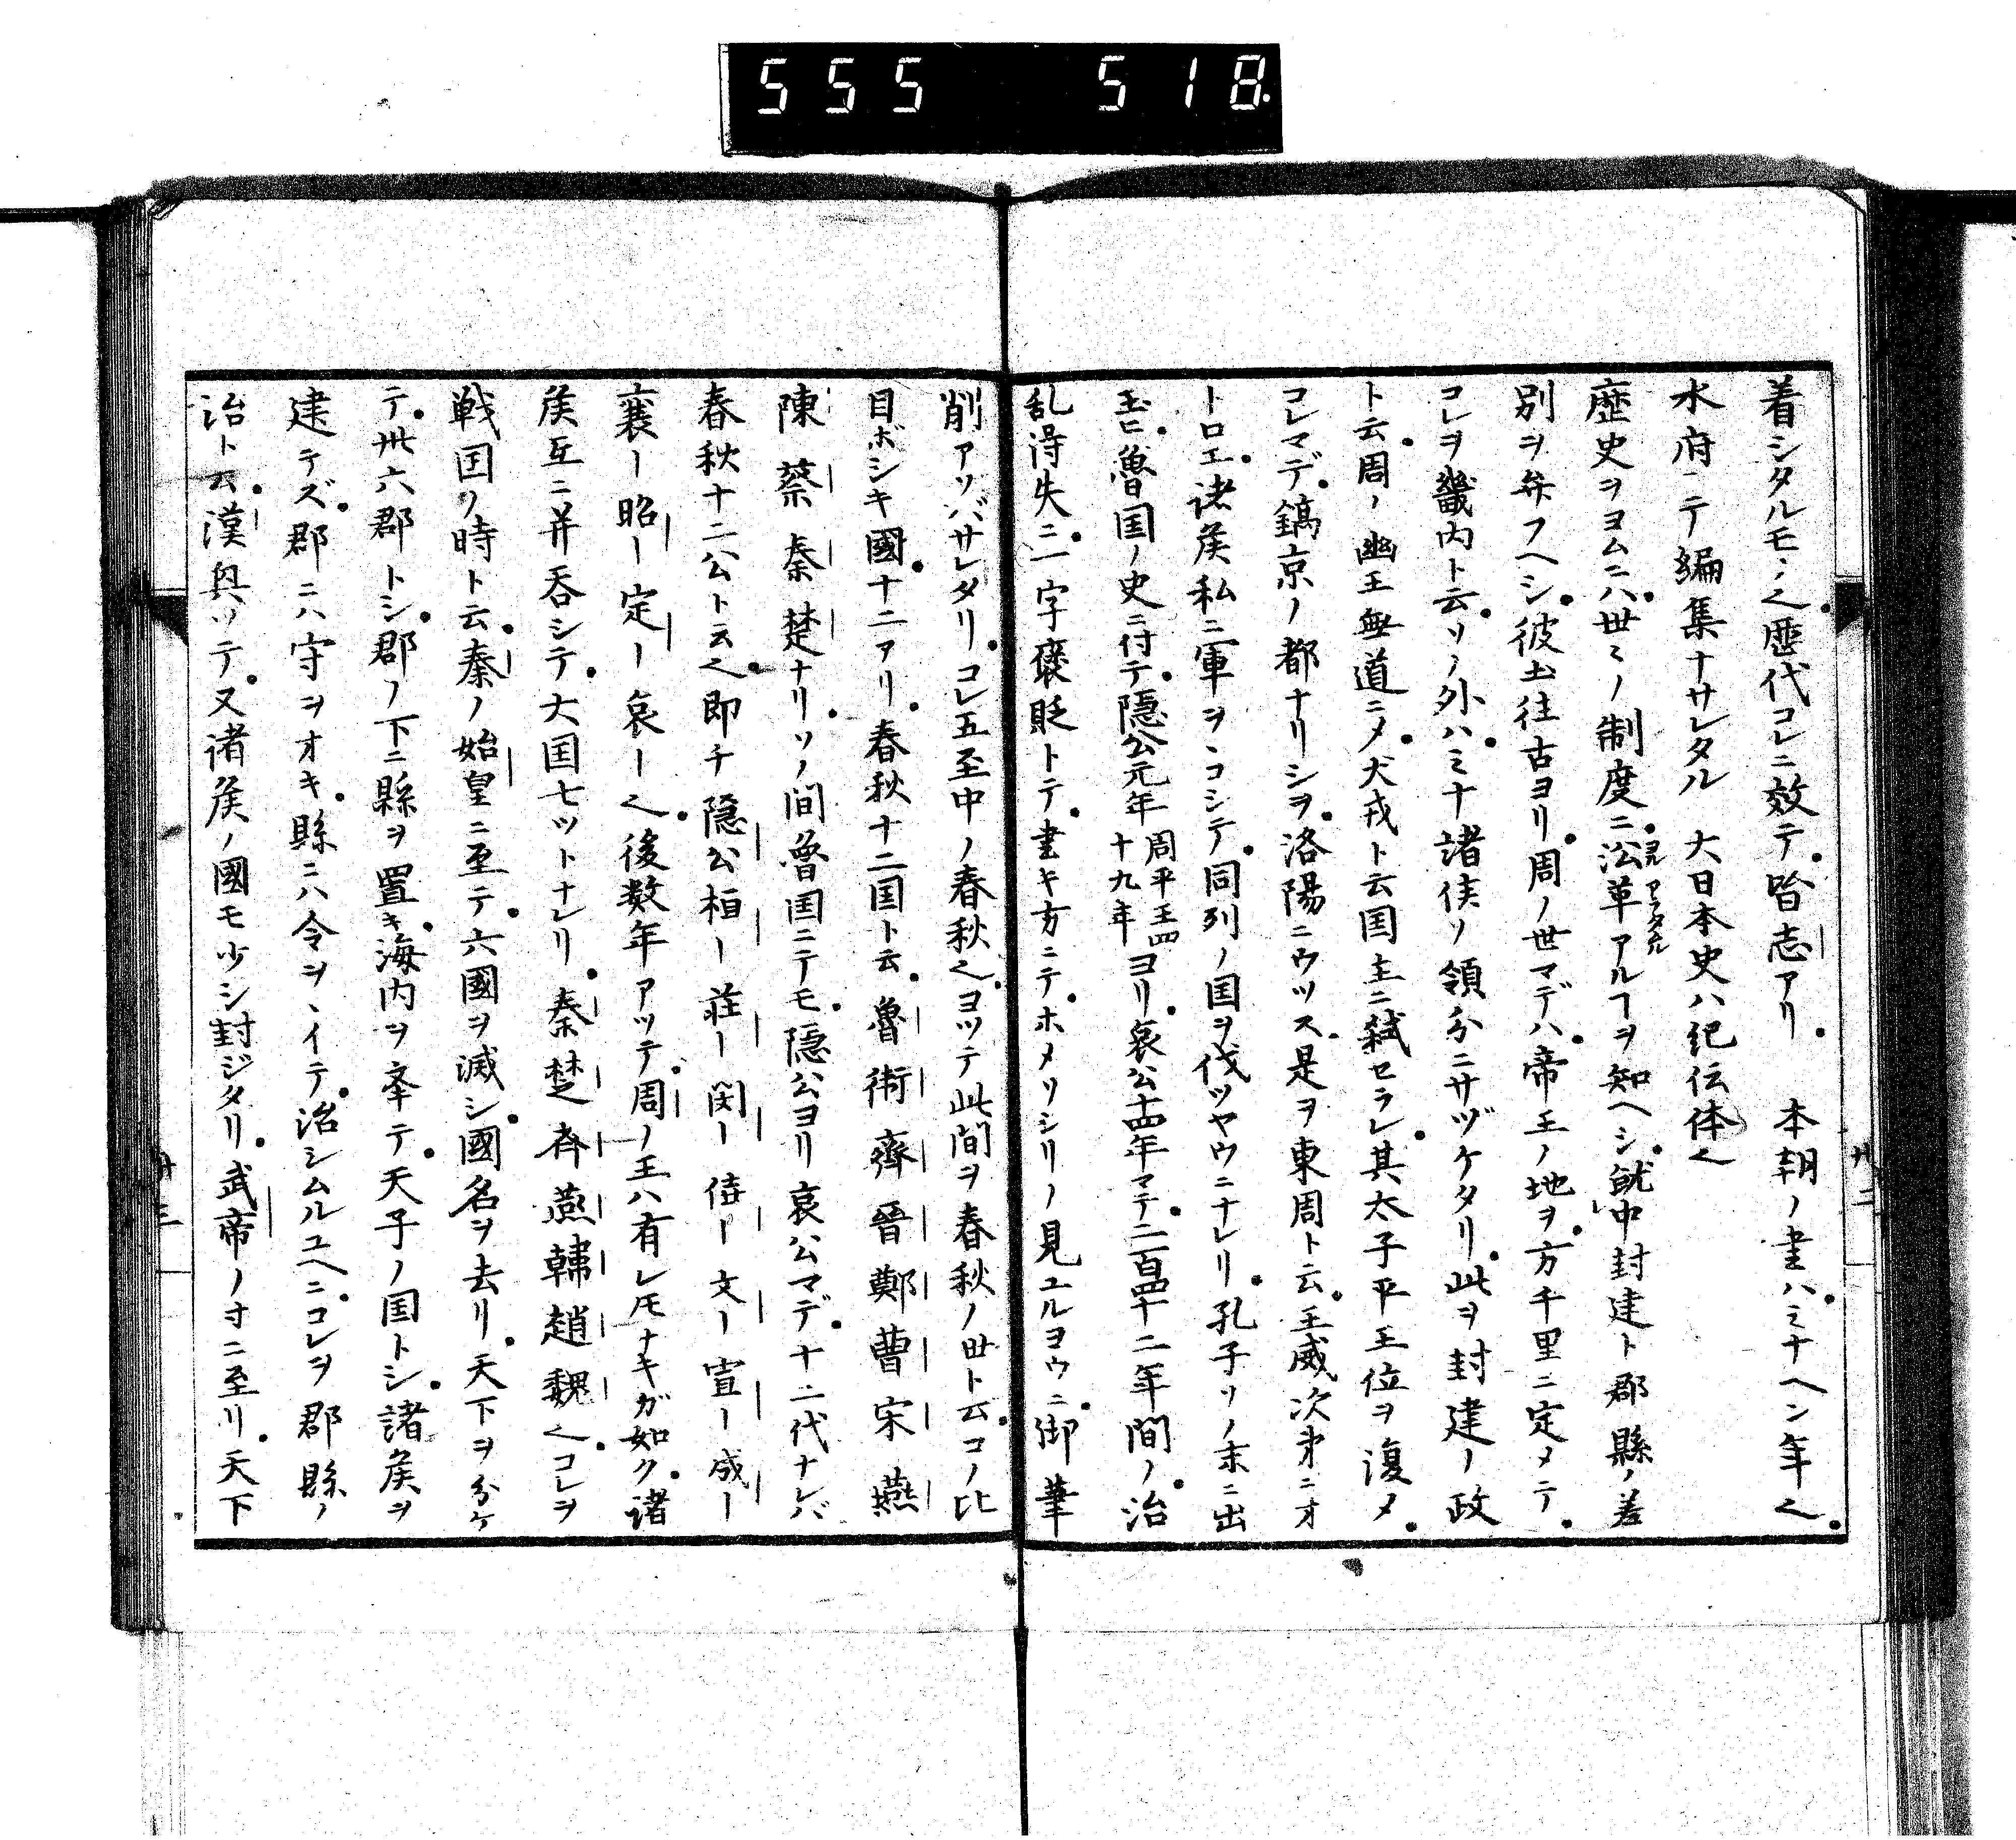 555 518.
着シタルモノ也歴代コレニ效テ皆志アリ　本朝ノ書ハミナヘン年也
水府ニテ編集ナサレタル　大日本史ハ紀伝体也
歴史ヲヨムニハ世々ノ制度ニ㳂革アルヿヲ知ヘシ就中封建ト郡縣ノ差
別ヲ弁フヘシ彼土往古ヨリ周ノ世マデハ帝王ノ地ヲ方千里ニ定メテ
コレヲ畿内ト云ソノ外ハミナ諸侯ノ領分ニサヅケタリ此ヲ封建ノ政
ト云周ノ幽王無道ニメ犬戎ト云国主ニ弑セラレ其太子平王位ヲ復メ
コレマデ鎬京ノ都ナリシヲ洛陽ニウツス是ヲ東周ト云王威次第ニオ
トロエ諸侯私ニ軍ヲヽコシテ同列ノ国ヲ伐ツヤウニナレリ孔子ソノ末ニ出
玉ヒ魯国ノ史ニ付テ隠公元年周平王四十九年ヨリ哀公十四年マテ二百四十二年間ノ治
乱得失ニ一字褒貶トテ書キ方ニテホメソシリノ見ユルヨウニ御筆
卅二
削アソバサレタリコレ五至中ノ春秋也ヨツテ此間ヲ春秋ノ世ト云コノ比
目ボシキ國十二アリ春秋十二国ト云魯衛齊晉鄭曹宋燕
陳蔡秦楚ナリソノ間魯国ニテモ隠公ヨリ哀公マデ十二代ナレバ
春秋十二公ト云也即チ隠公桓ー莊ー閔ー僖ー文ー宣ー成ー
襄ー昭ー定ー哀ー也後数年アツテ周ノ王ハ有レ𪜈ナキガ如ク諸
侯互ニ并吞シテ大国七ツトナレリ秦楚斉燕韓趙魏也コレヲ
戦国ノ時ト云秦ノ始皇ニ至テ六國ヲ滅シ國名ヲ去リ天下ヲ分ケ
テ卅六郡トシ郡ノ下ニ縣ヲ置キ海内ヲ率テ天子ノ国トシ諸侯ヲ
建テズ郡ニハ守ヲオキ縣ニハ令ヲヽイテ治シムルユヘニコレヲ郡縣ノ
治ト云漢興ツテ又諸侯ノ國モ少シ封ジタリ武帝ノ寸ニ至リ天下
卅三